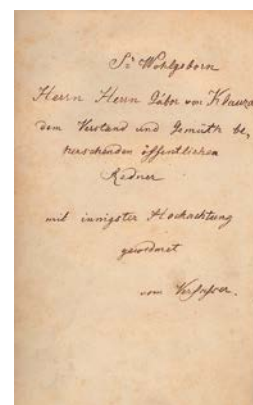 Sr Wohlgeborn
Herrn Herrn Gábor von Klauzá
dem Verstand und Gemüth be,
herrschenden öffentlichen
Redner
mit innigster Hochachtung
gewidmet
vom Verfasser.